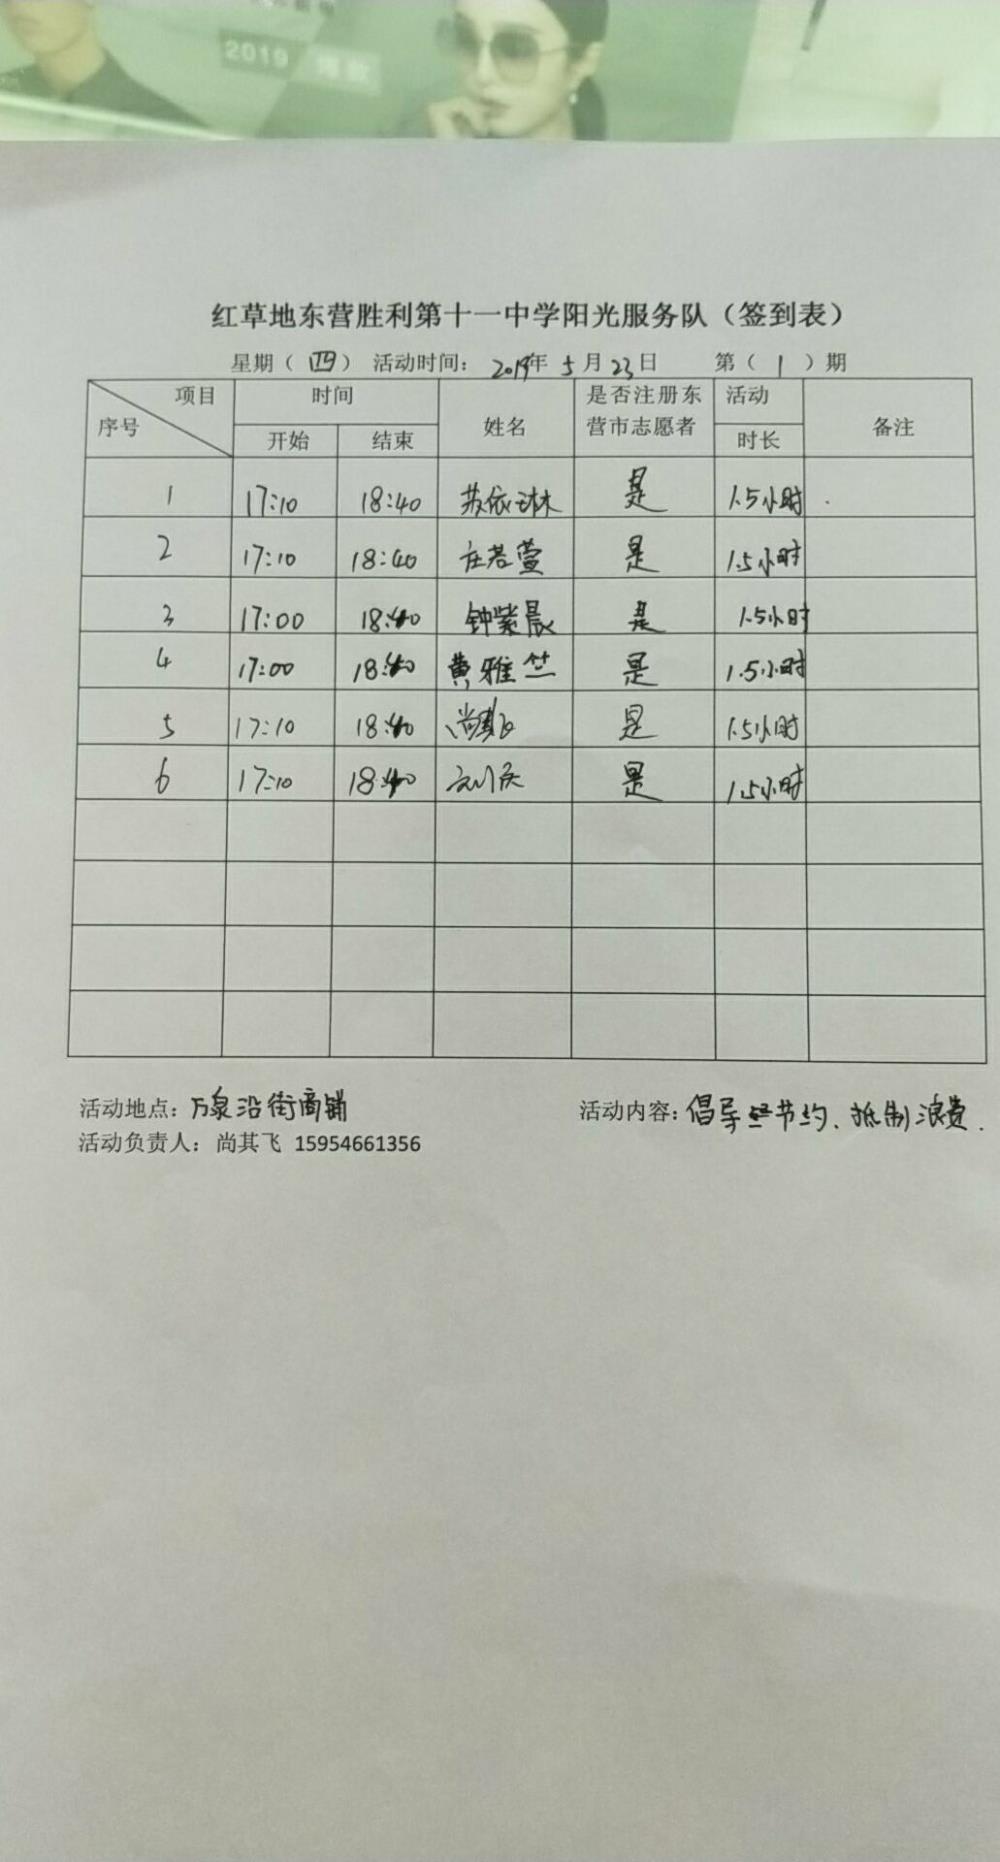 2019 爆款
红草地东营胜利第十一中学阳光服务队（签到表）
星期（四） 活动时间：2019年5月23日 第（1）期
项目 时间 是否注册东 活动
序号 姓名 营市志愿者 备注
开始 结束 时长
1 17:10 18:40 苏依琳 是 1.5小时
2 17:10 18:40 庄若萱 是 1.5小时
3 17:00 18:40 钟紫晨 是 1.5小时
4 17:00 18:40 黄雅竺 是 1.5小时
5 17:10 18:40 是 1.5小时
6 17:10 18:40 刘庆 是 1.5小时
活动地点：万泉沿街商铺 活动内容：倡导节约、抵制浪费.
活动负责人：尚其飞 15954661356